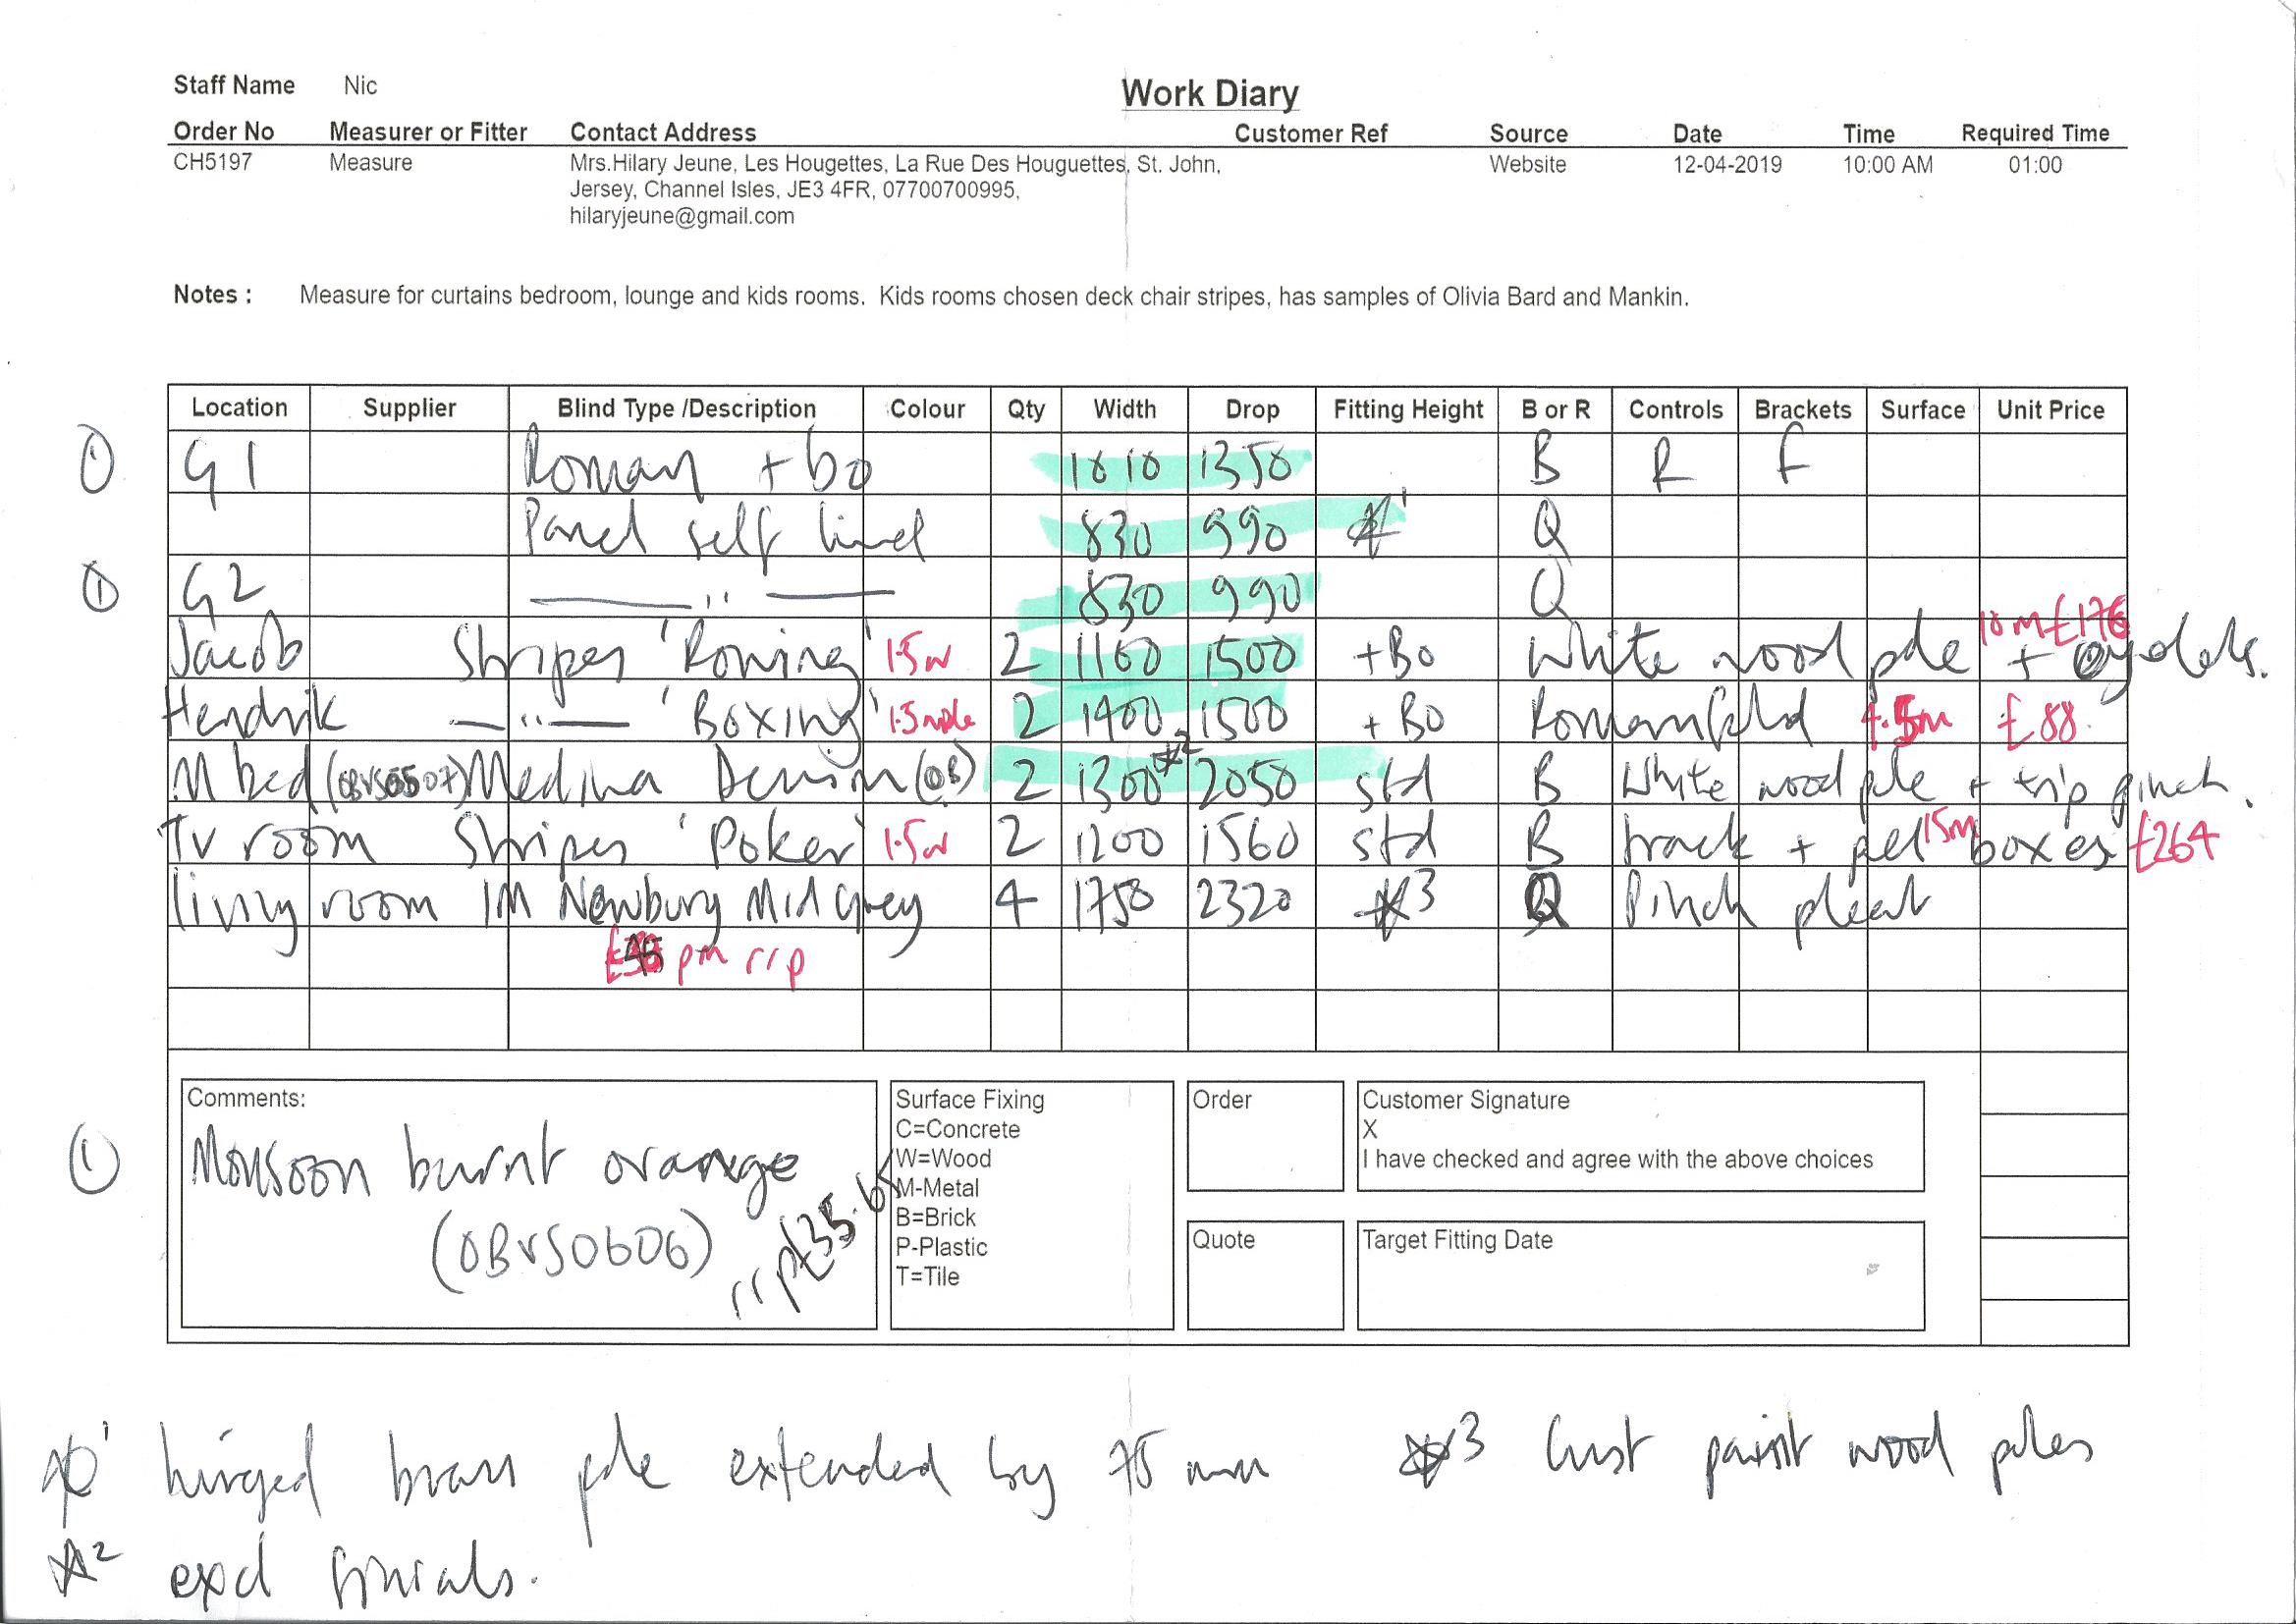 Staff Name Nic
Work Diary
Order No Measurer or Fitter Contact Address Customer Ref Source Date Time Required Time
CH5197 Measure Mrs.Hilary Jeune, Les Hougettes, La Rue Des Houguettes, St. John, Website 12-04-2019 10:00 AM 01:00
Jersey, Channel Isles, JE3 4FR, 07700700995,
hilaryjeune@gmail.com
Notes : Measure for curtains bedroom, lounge and kids rooms. Kids rooms chosen deck chair stripes, has samples of Olivia Bard and Mankin.
Location Supplier Blind Type /Description Colour Qty Width Drop Fitting Height B or R Controls Brackets Surface Unit Price
① G1 Roman + bo 1810 1350 B R F
Panel self lined 830 990 *1 Q
① G2 —— ,, —— 830 990 Q
10m £176
Jacob Stripes 'Rowing' 1.5w 2 1160 1500 +Bo White wood pole + eyelets.
Hendrik —,,— 'Boxing' 1.5 2 1400 1500 +Bo £88
M bed Medina Denim (OB) 2 1300 *2 2050 std B White wood pole + trip pinch.
TV room Stripes 'Poker' 1.5w 2 1200 1560 std B track + pel boxes 15m £264
living room IM Newbury Mid Grey 4 1750 2320 *3 Q Pinch pleat
pm rrp
Comments:
① Monsoon burnt orange
(OBVS0606)
rrp £35.65
Surface Fixing
C=Concrete
W=Wood
M-Metal
B=Brick
P-Plastic
T=Tile
Order
Customer Signature
X
I have checked and agree with the above choices
Quote
Target Fitting Date
*1 hinged brass pole extended by 75 mm *3 Cust paint wood poles
*2 excl finials.